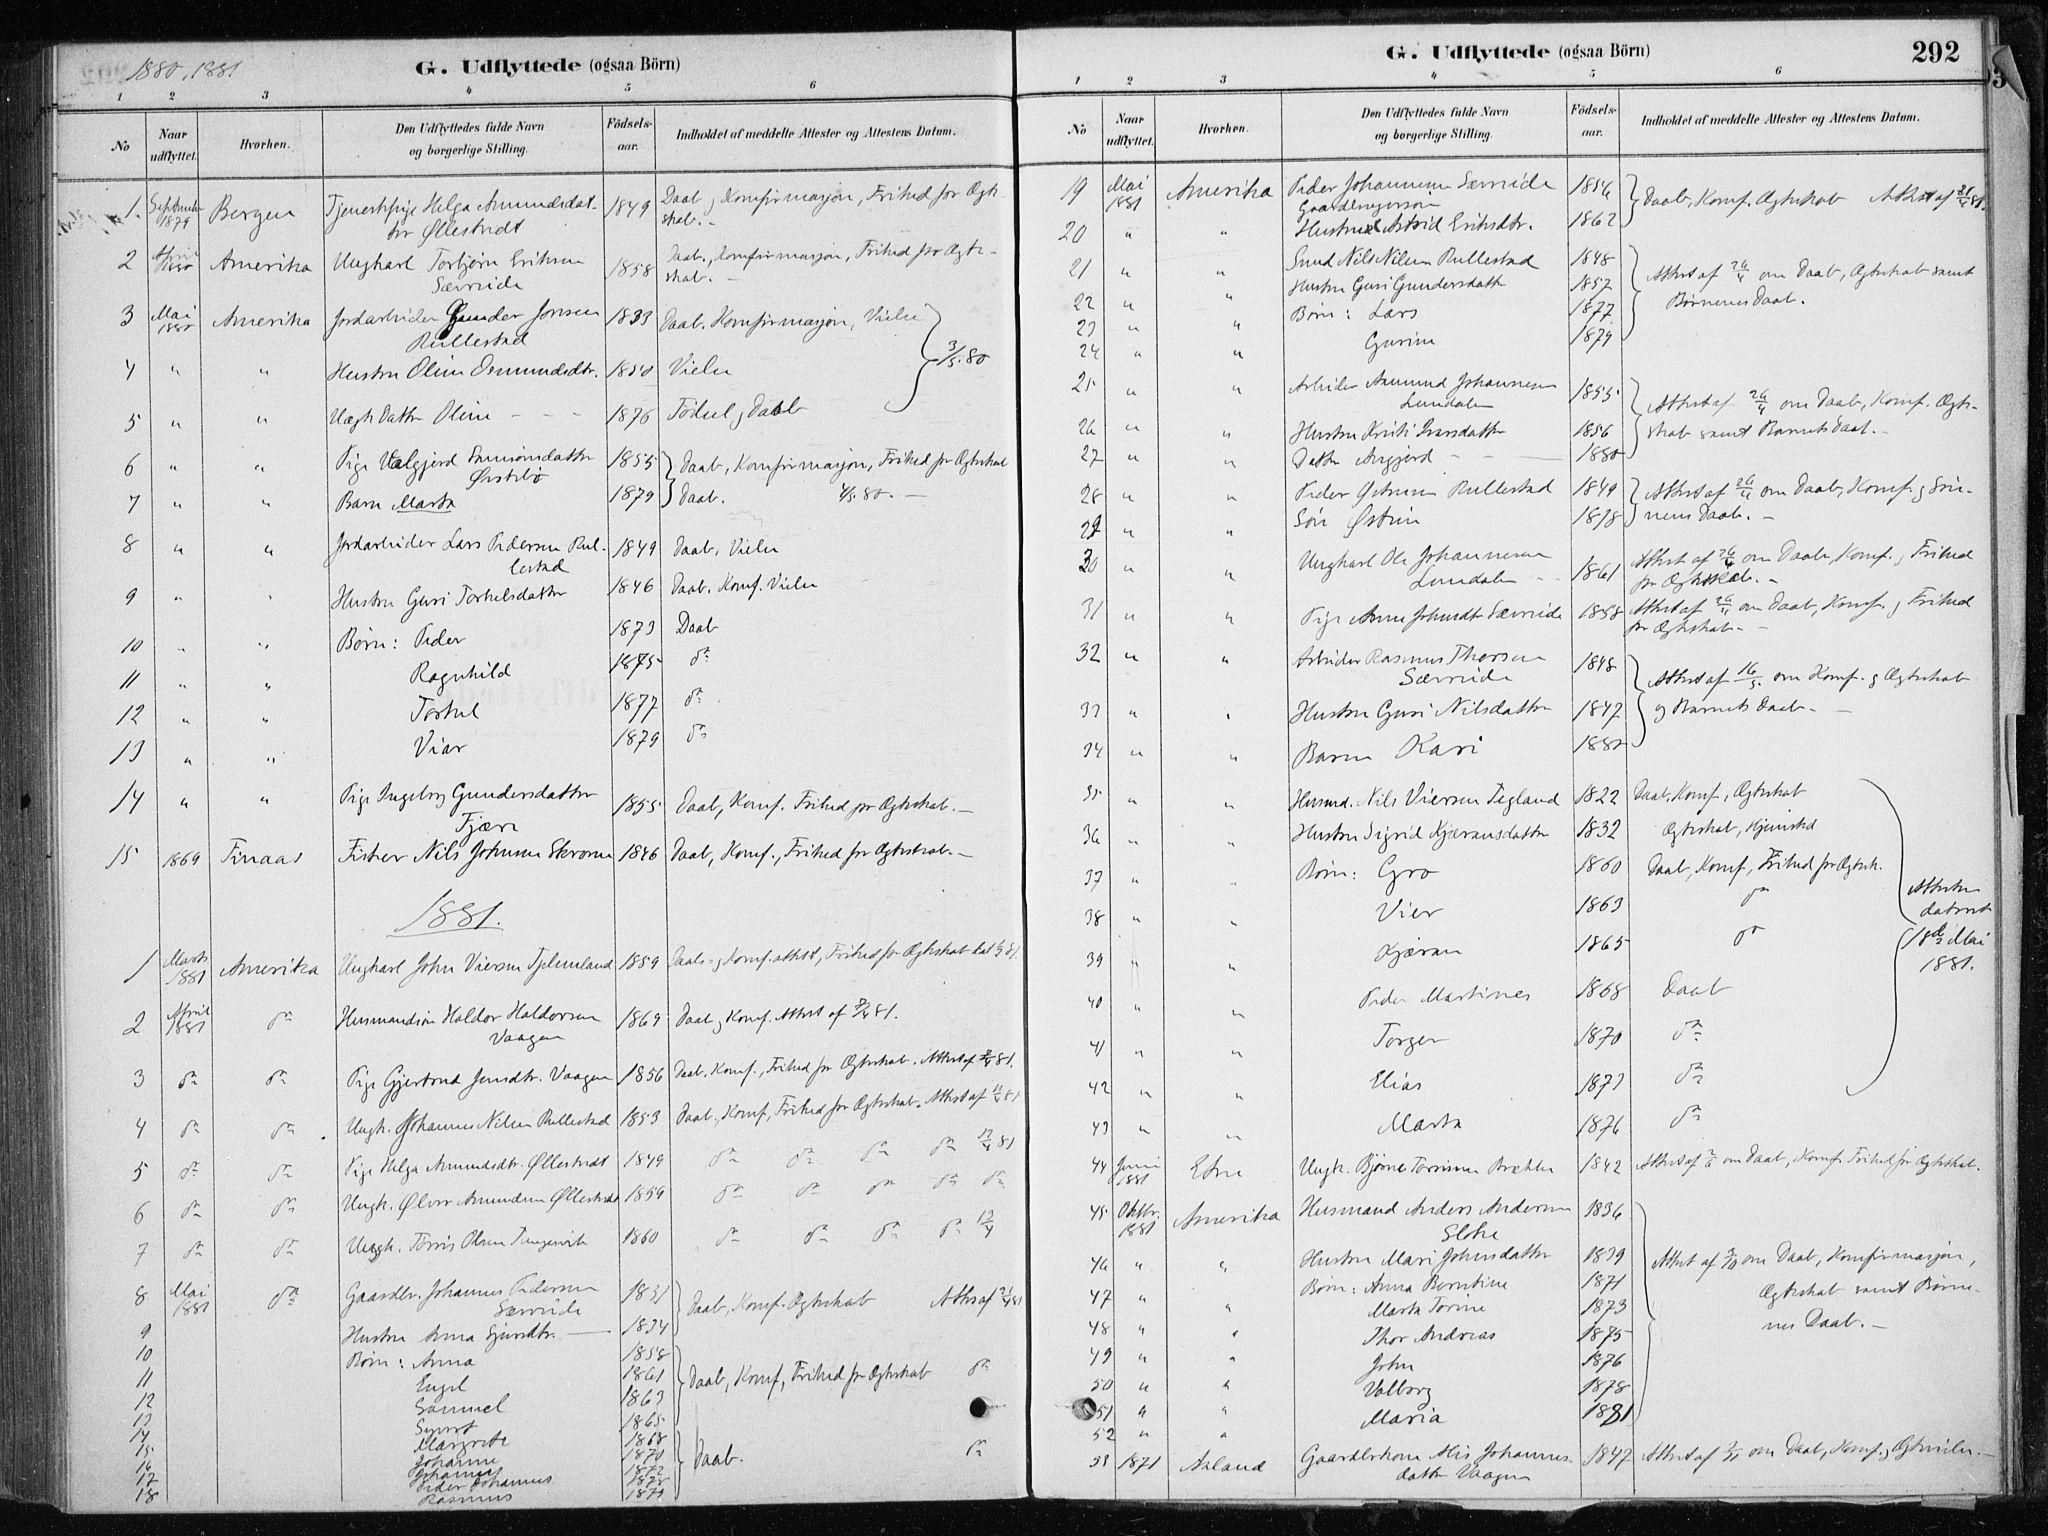 1880, 1881
G. Udflyttede (ogsaa Börn)
1 2 3 4 5 6
No
Naar udflyttet.
Hvorhen.
Den Udflyttedes fulde Navn og borgerlige Stilling.
Födsels-aar.
Indholdet af meddelte Attester og Attestens Datum.
1. September 1879 Bergen Tjenestpige Helga Amundsdat- 1849 Daab, Konfirmasjon, Frihed for Ægte-
ter Øllestvedt skab.-
2 April 1880 Amerika Ungkarl Torbjørn Eriksen 1858 Daab, Konfirmasjon, Frihed for Ægte-
Særeide skab.-
3 Mai 1880 Amerika Jordarbeider Gunder Jonsen 1833 Daab, Konfirmasjon, Vielse
Rullestad 3/5.80
4 " " Hustru Oline Osmundsdtr. 1850 Vielse
5 " " Uægte Datter Oline - - - 1876 Fødsel, Daab
6 " " Pige Valgjerd 1855 Daab, Konfirmasjon, Frihed for Ægteskab
7 " " Barn Marta 1879 Daab. 4/5.80.-
8 " " Jordarbeider Lars Pedersen Rul- 1849 Daab, Vielse
lestad
9 " " Hustru Guri Torkelsdatter 1846 Daab. Konf. Vielse
10 " " Børn: Peder 1873 Daab
11 " " Ragnhild 1875 do
12 " " Torkel 1877 do
13 " " Viar 1879 do
14 " " Pige Ingeborg Gundersdatter 1855 Daab, Konf. Frihed for Ægteskab.-
Fjære
15 1869 Finaas Fisker Nils Johnsen 1846 Daab, Konf., Frihed for Ægteskab.-
1881.
1 Marts 1881 Amerika Ungkarl John Viersen 1859 Daabs- og Konf.attest, Frihed for Ægteskab
2 April 1881 do Husmandssøn Haldor Haldorsen 1869 Daab og Konf. Attest af
Vaagen
3 do do Pige Gjertrud Jensdtr. Vaagen 1856 Daab, Konf., Frihed for Ægteskab. Attest af
4 do do Ungk. Johannes Nilsen Rullestad 1853 Daab, Konf, Frihed for Ægteskab. Attest af 12/4 81
5 do do Pige Helga Amundsdtr. Øllestvedt 1849 do do do do 12/4 81
6 do do Ungk. Amundsen Øllestvedt 1859 do do do do do
7 do do Ungk. Tørris Olsen 1860 do do do do 13/4
8 Mai 1881 do Gaardbr. Johannes Pedersen 1831 Daab, Konf. Ægteskab Attest af
Særeide
9 Hustru Anna 1834
10 Børn: Anna 1858
11 Engel 1861 Daab, Konf, Frihed for Ægteskab do
12 Sammel 1863
13 Syvert 1865
14 Margrete 1868
15 Johanne 1870 Daab. do
16 Johannes 1872
17 Peder Johannes 1878
18 Rasmus 1879
G. Udflyttede (ogsaa Börn)
292
1 2 3 4 5 6
No
Naar udflyttet.
Hvorhen.
Den Udflyttedes fulde Navn og borgerlige Stilling.
Födsels-aar.
Indholdet af meddelte Attester og Attestens Datum.
19 Mai 1881 Amerika Peder Johannesen Særeide 1856 Daab, Konf. Ægteskab Attest af
20 " " Hustru Astrid Eriksdtr. 1862
21 " " Smed Nils Nilsen Rullestad 1848 Attest af 26/4 om Daab, Ægteskab samt
22 " " Hustru Guri Gundersdatter 1857 Børnenes Daab.
23 " " Børn: Lars 1877
24 " " Gurine 1879
25 " " Arbeider Aamund Johannesen 1855 Attest af 26/4 om Daab, Konf. Ægte-
Lundalen
26 " " Hustru Kristi Iversdatter 1856 skab samt Barnets Daab.-
27 " " Datter 1880
28 " " Peder Rullestad 1849 Attest af 26/4 om Daab, Konf. og Søn-
29 " " Søn Østein 1878 nens Daab.-
30 " " Ungkarl Ole Johannesen 1861 Attest af 26/4 om Daab, Konf. og Frihed
Lundalen - - for Ægteskab.-
31 " " Pige Anna Særeide 1858 Attest af 26/4 om Daab, Konf. og Frihed
for Ægteskab.-
32 " " Arbeider Rasmus Thorsen 1848 Attest af 16/5. om Konf. og Ægteskab
Særeide
33 " " Hustru Guri Nilsdatter 1847 og Barnets Daab.-
34 " " Barn Kari 1880
35 " " Husmd. Nils Viersen Tegland 1822 Daab, Konf., Ægteskab
36 " " Hustru Sigrid Kjæransdatter 1832 Ægteskab, Hjemsted
37 " " Børn: Gro 1860 Daab, Konf, Frihed for Ægtesk.
38 " " Vier 1863 do
39 " " Kjæran 1865 do
Attester dateret 18de Mai 1881.
40 " " Peder Martines 1868 Daab
41 " " Torger 1870 do
42 " " Elias 1873 do
43 " " Marta 1876 do
44 Juni 1881 Etne Ungk. Bjørne 1842 Attest af om Daab, Konf. Frihed for Ægteskab.
45 Oktbr. 1881 Amerika Husmand Anders Andersen 1836
Sløke
46 " " Hustru Mari Johnsdatter 1839 Attest af 3/10 om Daab, Konfirmasjon,
47 " " Børn: Anna Berntine 1871 Ægteskab samt Børne-
48 " " Marta Torine 1873 nes Daab.-
49 " " Thor Andreas 1875
50 " " John 1876
51 " " Valborg 1878
52 " " Maria 1881
53 1871 Aaland Gaardbrkone Johannes- 1847 Attest af om Daab, Konf. og Ægtevielse.-
datter Vaagen